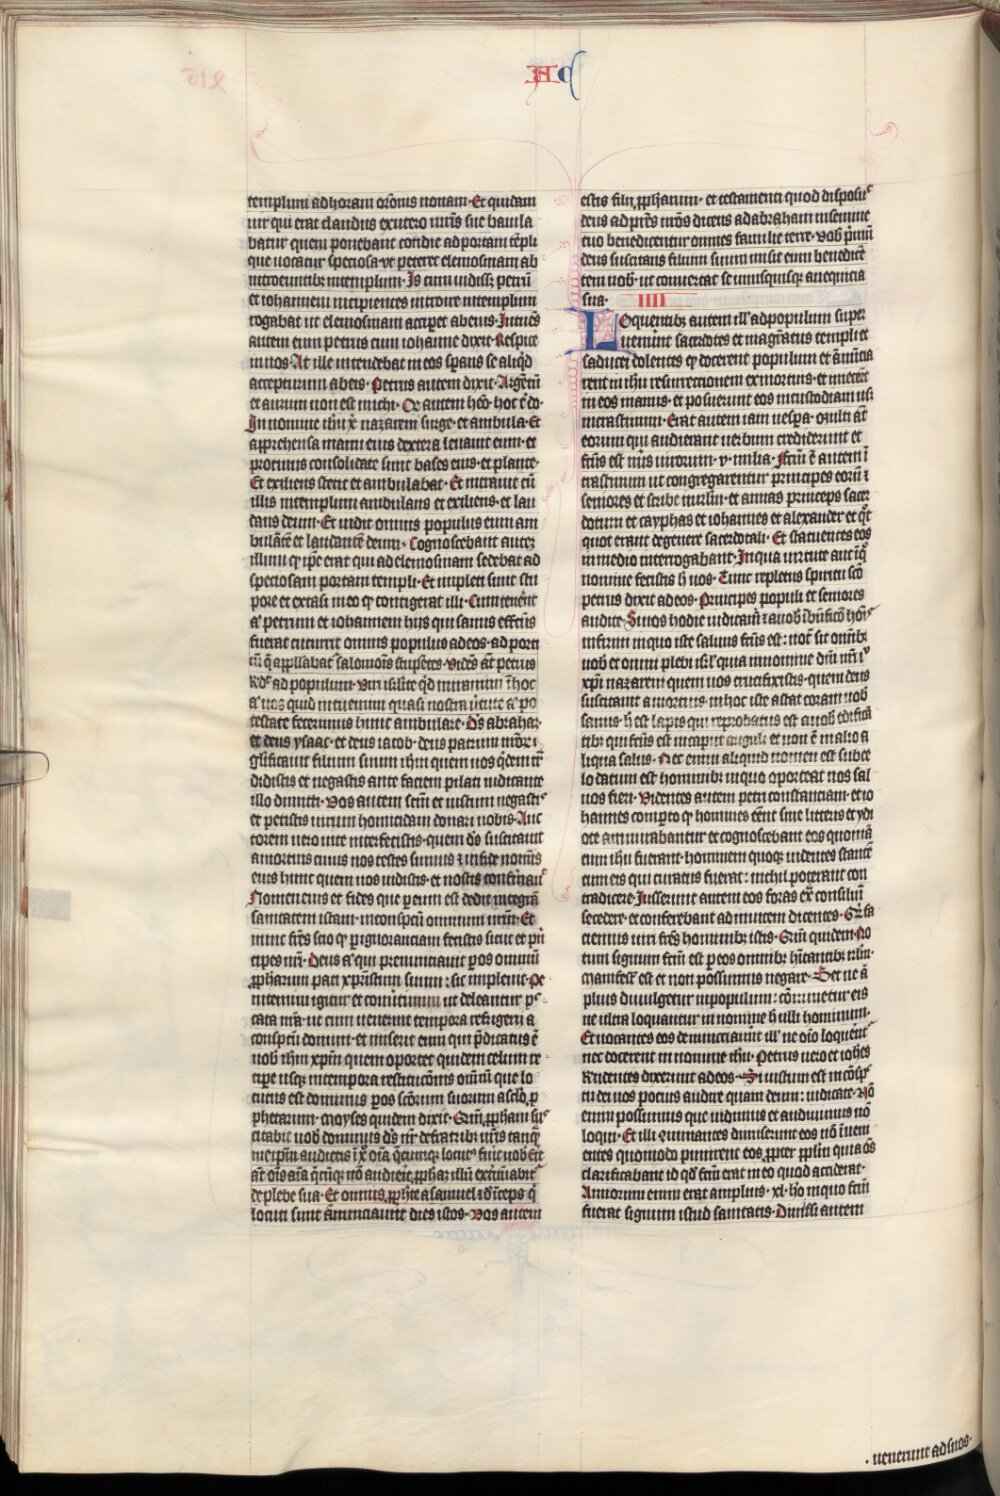 templum ad horam orōnis nonam· Et quidam
uir qui erat claudus ex utero mr̄is sue baiula
batur quem ponebant cotidie ad portam tēpli
que uocatur speciosa ut peteret elemosinam ab
introeuntibꝫ in templum· Is cum uidissꝫ petrū
et iohannem incipientes introire in templum
rogabat ut elemosinam acciperet ab eis· Intuēs
autem eum petrus cum iohanne dixit· Respice
in nos· At ille intendebat in eos sperans se aliqͥd
accepturum ab eis· Petrus autem dixit· Argētū
et aurum non est michi· Qd̄ autem habeo hoc t̄ do·
In nomine ih̄u xp̄i nazareni surge· et ambula· Et
apprehensa manu eius dextera leuauit eum· et
protinus consolidate sunt bases eius· et plante·
Et exiliens stetit et ambulabat· Et intrauit cū
illis in templum ambulans et exiliens· et lau
dans deum· Et uidit omnis populus eum am
bulātē et laudantē deum· Cognoscebant autem
illum qͥ ip̄e erat qui ad elemosinam sedebat ad
speciosam portam templi· Et impleti sunt stu
pore et extasi in eo qͥ contigerat illi· Cum teneret
aū petrum et iohannem hijs qui sanus effectus
fuerat cucurrit omnis populus ad eos· ad porti
cū q̄ appellabat salomonis stupētes· Vidēs aūt petrus
Rd̓ ad populum· Viri isrlite qͥd miramini ī hoc
aū nos quid intuemini quasi nostra uirtute aū po
testate fecerimus hunc ambulare· Ds̄ abraham
et deus ysaac· et deus iacob· deus patrum nr̄orum
glificauit filium suum ih̄m quem uos qͥdem tͣ
didistis et negastis ante faciem pilati iudicante
illo dimitti· Vos autem scm̄ et iustum negastis
et petistis uirum homicidam donari uobis· Auc
torem uero uite interfecistis· quem ds̄ suscitauit
a mortuis cuius nos testes sumus ⁊ in fide nominis
eius hunc quem uos uidistis· et nostis confirmauit
Nomen eius et fides que per eum est dedit integrā
sanitatem istam· in conspectu omnium ur̄m· Et
nunc frēs scio qͥ per ignorantiam fecistis sicut et pͥn
cipes ur̄i· Deus aū qui prenunciauit per os omniū
prophetarum pati xpristum suum : sic impleuit· Pe
nitemini igitur et conuertimini ut deleantur pec
cata ur̄a· ut cum uenerint tempora refrigerii a
conspectu domini· et miserit eum qui p̄dicatus ē
uob̄ ih̄m xp̄m quem oportet quidem celum re
cipe usqꝫ in tempora restitucōnis omniū que lo
cutus est dominus per os sc̄orum suorum a sclo p
phetarum· Moyses quidem dixit· Qm̄ prophetam su
citabit uob̄ dominus ds̄ ur̄ de fratribꝫ ur̄is tanqͣ
me ipm̄ audietis
de plebe sua· Et omnes prophete a samuel et deinceps qͥ
locuti sunt annunciauerunt dies istos· Vos autem
estis filii prophetarum· et testamenti quod disposuit
deus ad patres nr̄os dicens ad abraham in semine
tuo benedicentur omnes familie terre· Vob̄ p̄mū
deus suscitans filium suum misit eum benedicē
tem uob̄· ut conuertat se unusquisqꝫ a nequicia
sua· IIII
Loquentibꝫ autem ill̄ ad populum super
uenerunt sacerdotes et magr̄atus templi et
saducei dolentes qͥ docerent populum et an̄ncia
rent in ih̄u resurrectionem ex mortuis· et iniecerunt
in eos manus· et posuerunt eos in custodiam usqꝫ
in crastinum· Erat autem iam uespera· Multi aūt
eorum qui audierant uerbum crediderunt et
factus est nūs uirorum· v· milia· Factum ē autem ī
crastinum ut congregarentur principes eorū ⁊
seniores et scribe in irlm̄· et annas princeps sacer
dotum et cayphas et iohannes et alexander et qͦt
quot erant de genere sacerdotali· Et statuentes eos
in medio interrogabant· In qua uirtute aut ī qͦ
nomine fecistis h̄ uos· Tunc repletus spiritu sc̄o
petrus dixit ad eos· Principes populi et seniores
audite· Si nos hodie iudicamur
infirmi in quo iste saluus factus est: notū sit omnibꝫ
uob̄ et omni plebi isrl̄ quia in nomine dn̄i nr̄i ih̄u
xp̄i nazareni quem uos crucifixistis· quem deus
suscitauit a mortuis· in hoc iste astat coram uob̄
sanus· h̄ est lapis qui reprobatus est a uob̄ edifican
tibꝫ qui factus est in caput anguli et non ē in alio a
liqua salus· Nec enim aliquid nomen est sub ce
lo datum est hominibꝫ in quo oporteat nos sal
uos fieri· Videntes autem petri constanciam· et io
hannes comperto qͥ homines eēnt sine litteris et ydi
ote ammirabantur et cognoscebant eos quoniā
cum ih̄u fuerant· hominem quoqꝫ uidentes stantē
cum eis qui curatus fuerat: nichil poterant con
tradicere· Iusserunt autem eos foras ex̄ consilium
secedere· et conferebant ad inuicem dicentes· Quid fa
ciemus uiri frēs hominibꝫ istis· Qm̄ quidem no
tum signum factum est per eos omnibꝫ hītantibꝫ irlm̄·
Manifestum est et non possumus negare· Set ne ā
plius diuulgetur in populum: cōminetur eis
ne ultra loquantur in nomine h̄ ulli hominum·
Et uocantes eos denunciauerunt ill̄ ne oīo loquerēt
nec docerent in nomine ih̄u· Petrus uero et ioh̄es
Respondentes dixerunt ad eos· Si iustum est in cōspectu
tu dei uos pocius audire quam deum: iudicate· Nō
enim possumus que uidimus et audiuimus nō
loqui· Et illi cominantes dimiserunt eos nō inueni
entes quomodo punirent eos propter pplm̄ quia oēs
clarificabant id qͦd factum erat in eo quod acciderat·
Annorum enim erat amplius· xl· hō in quo factum
fuerat signum istud sanitatis· Dimissi autem
· uenerunt ad suos·